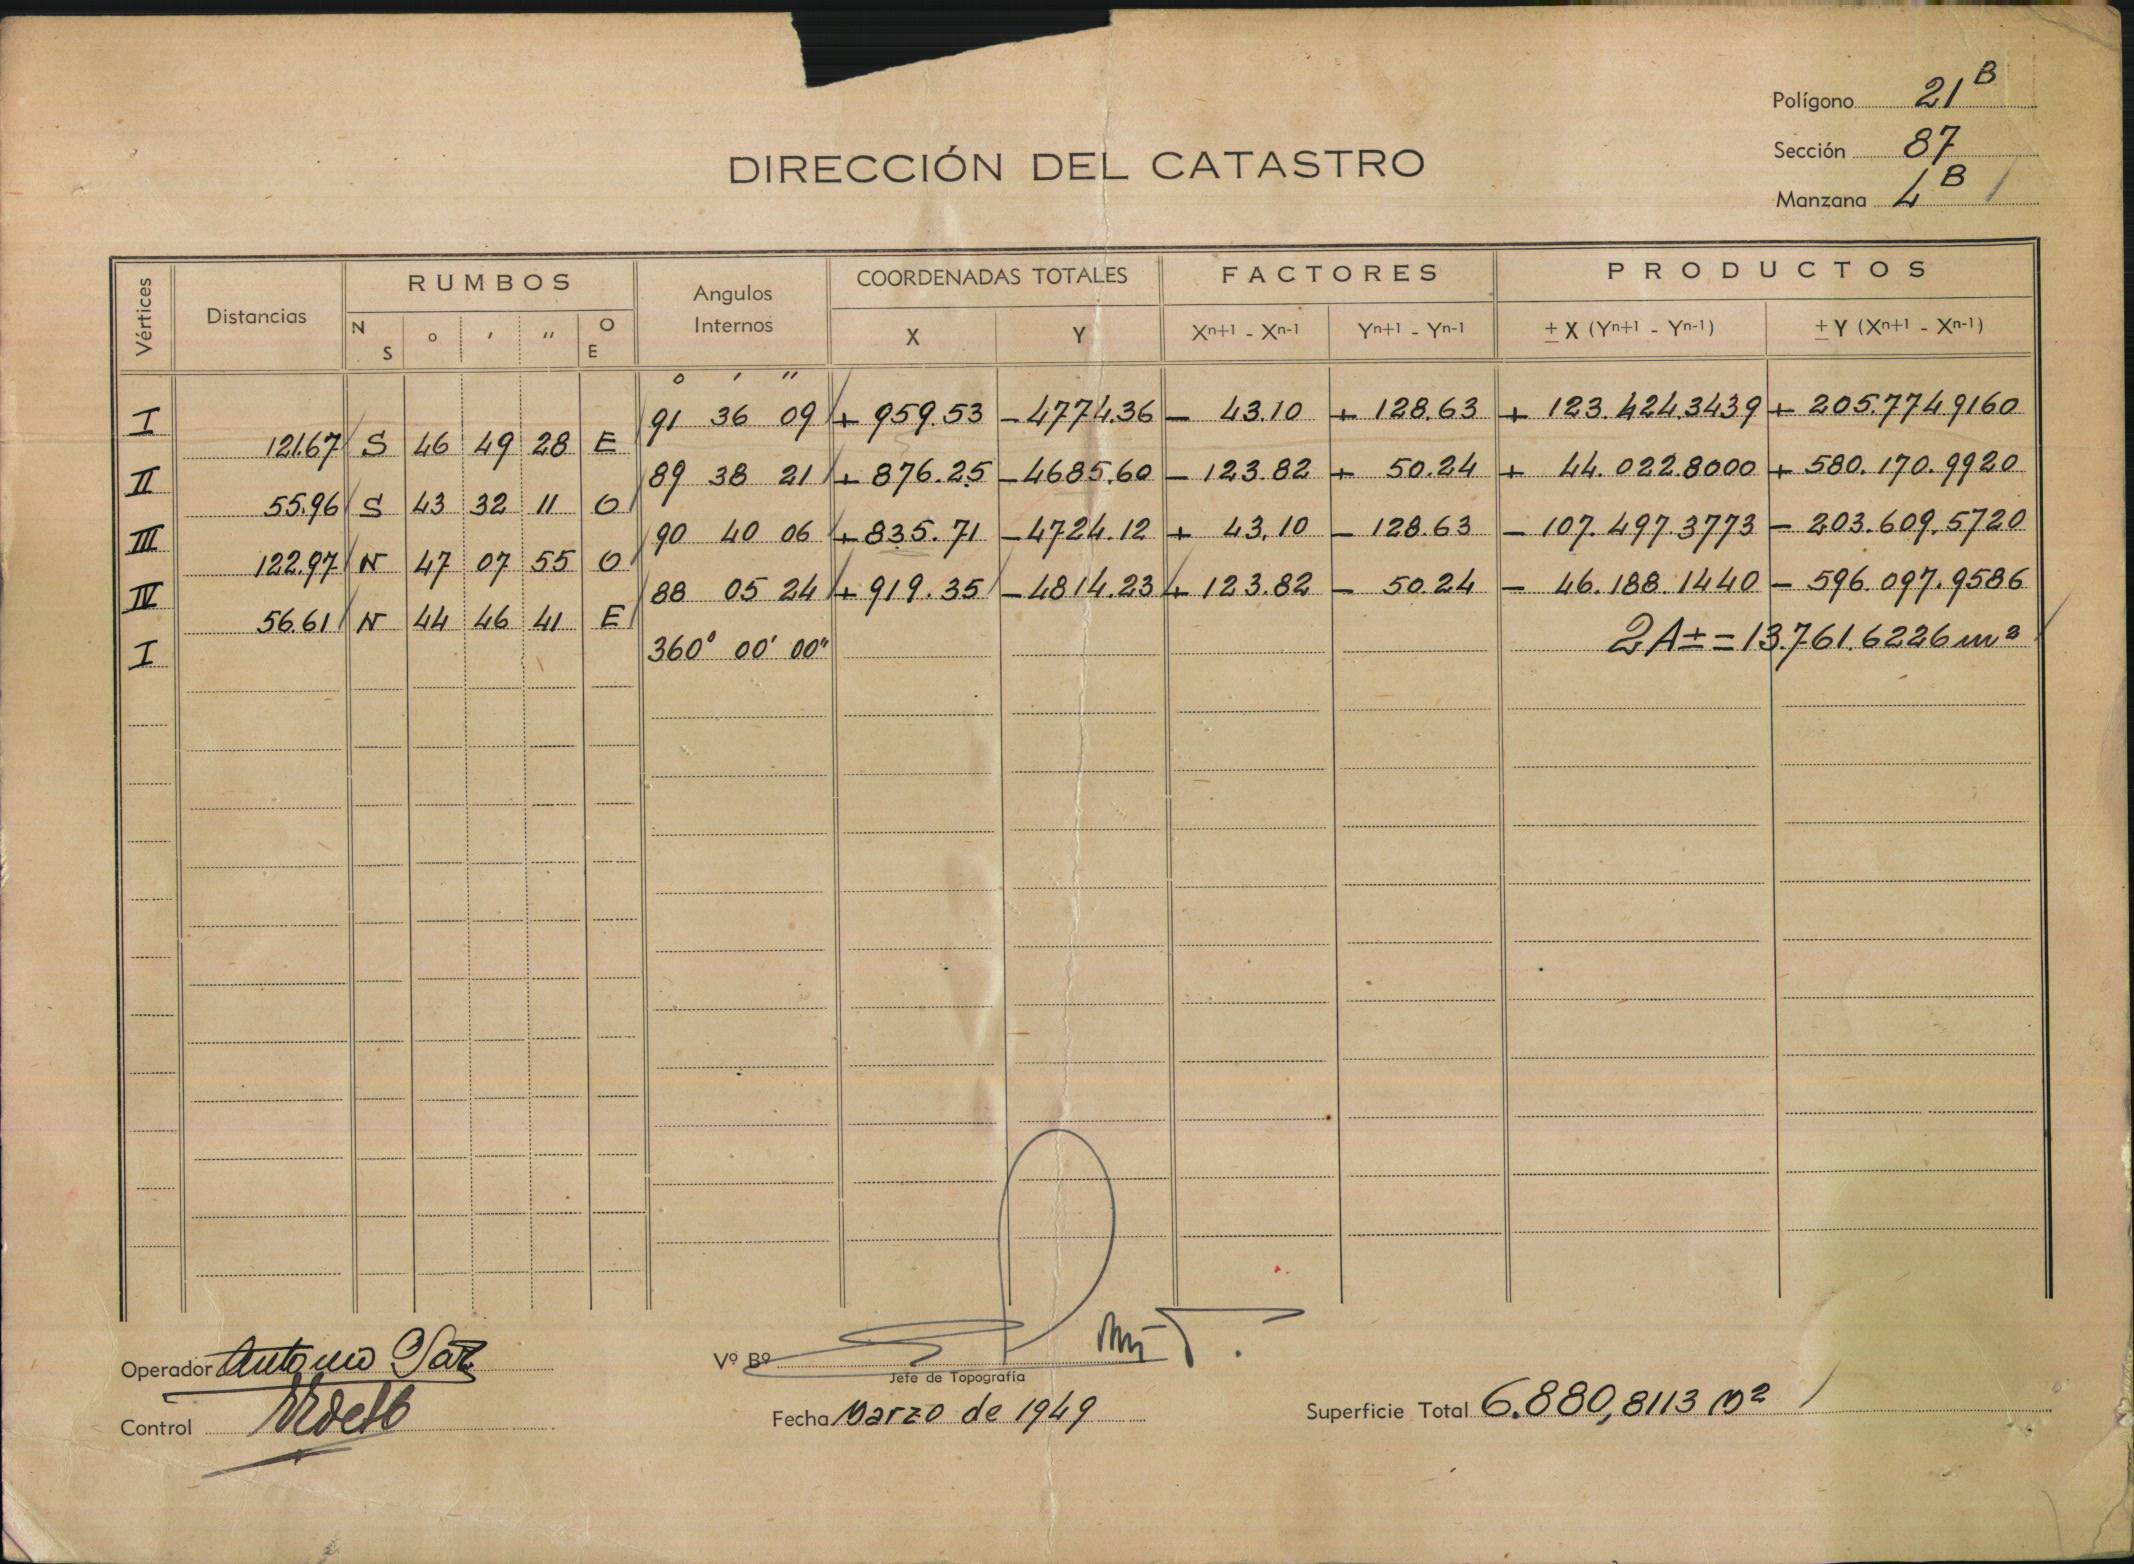 Polígono 21 B
Sección 87
Manzana 4 B
DIRECCIÓN DEL CATASTRO
Vértices Distancias RUMBOS Angulos Internos COORDENADAS TOTALES FACTORES PRODUCTOS
N S ° ' " O E X Y Xn+1 - Xn-1 Yn+1 - Yn-1 ± X (Yn+1 - Yn-1) ± Y (Xn+1 - Xn-1)
° ' "
I 91 36 09 + 959.53 - 4774.36 - 43.10 + 128.63 + 123.424.3439 + 205.7749160
121.67 S 46 49 28 E
II 89 38 21 + 876.25 - 4685.60 - 123.82 + 50.24 + 44.022.8000 + 580.170.9920
55.96 S 43 32 11 O
III 90 40 06 + 835.71 - 4724.12 + 43.10 - 128.63 - 107.497.3773 - 203.609.5720
122.97 N 47 07 55 O
IV 88 05 24 + 919.35 - 4814.23 + 123.82 - 50.24 - 46.188.1440 - 596.097.9586
56.61 N 44 46 41 E
I 360° 00' 00" 2A± = 13.761.6226 m²
Operador Antonio
Vº Bº
Jefe de Topografía
Control
Fecha Marzo de 1949
Superficie Total 6.880,8113 M²